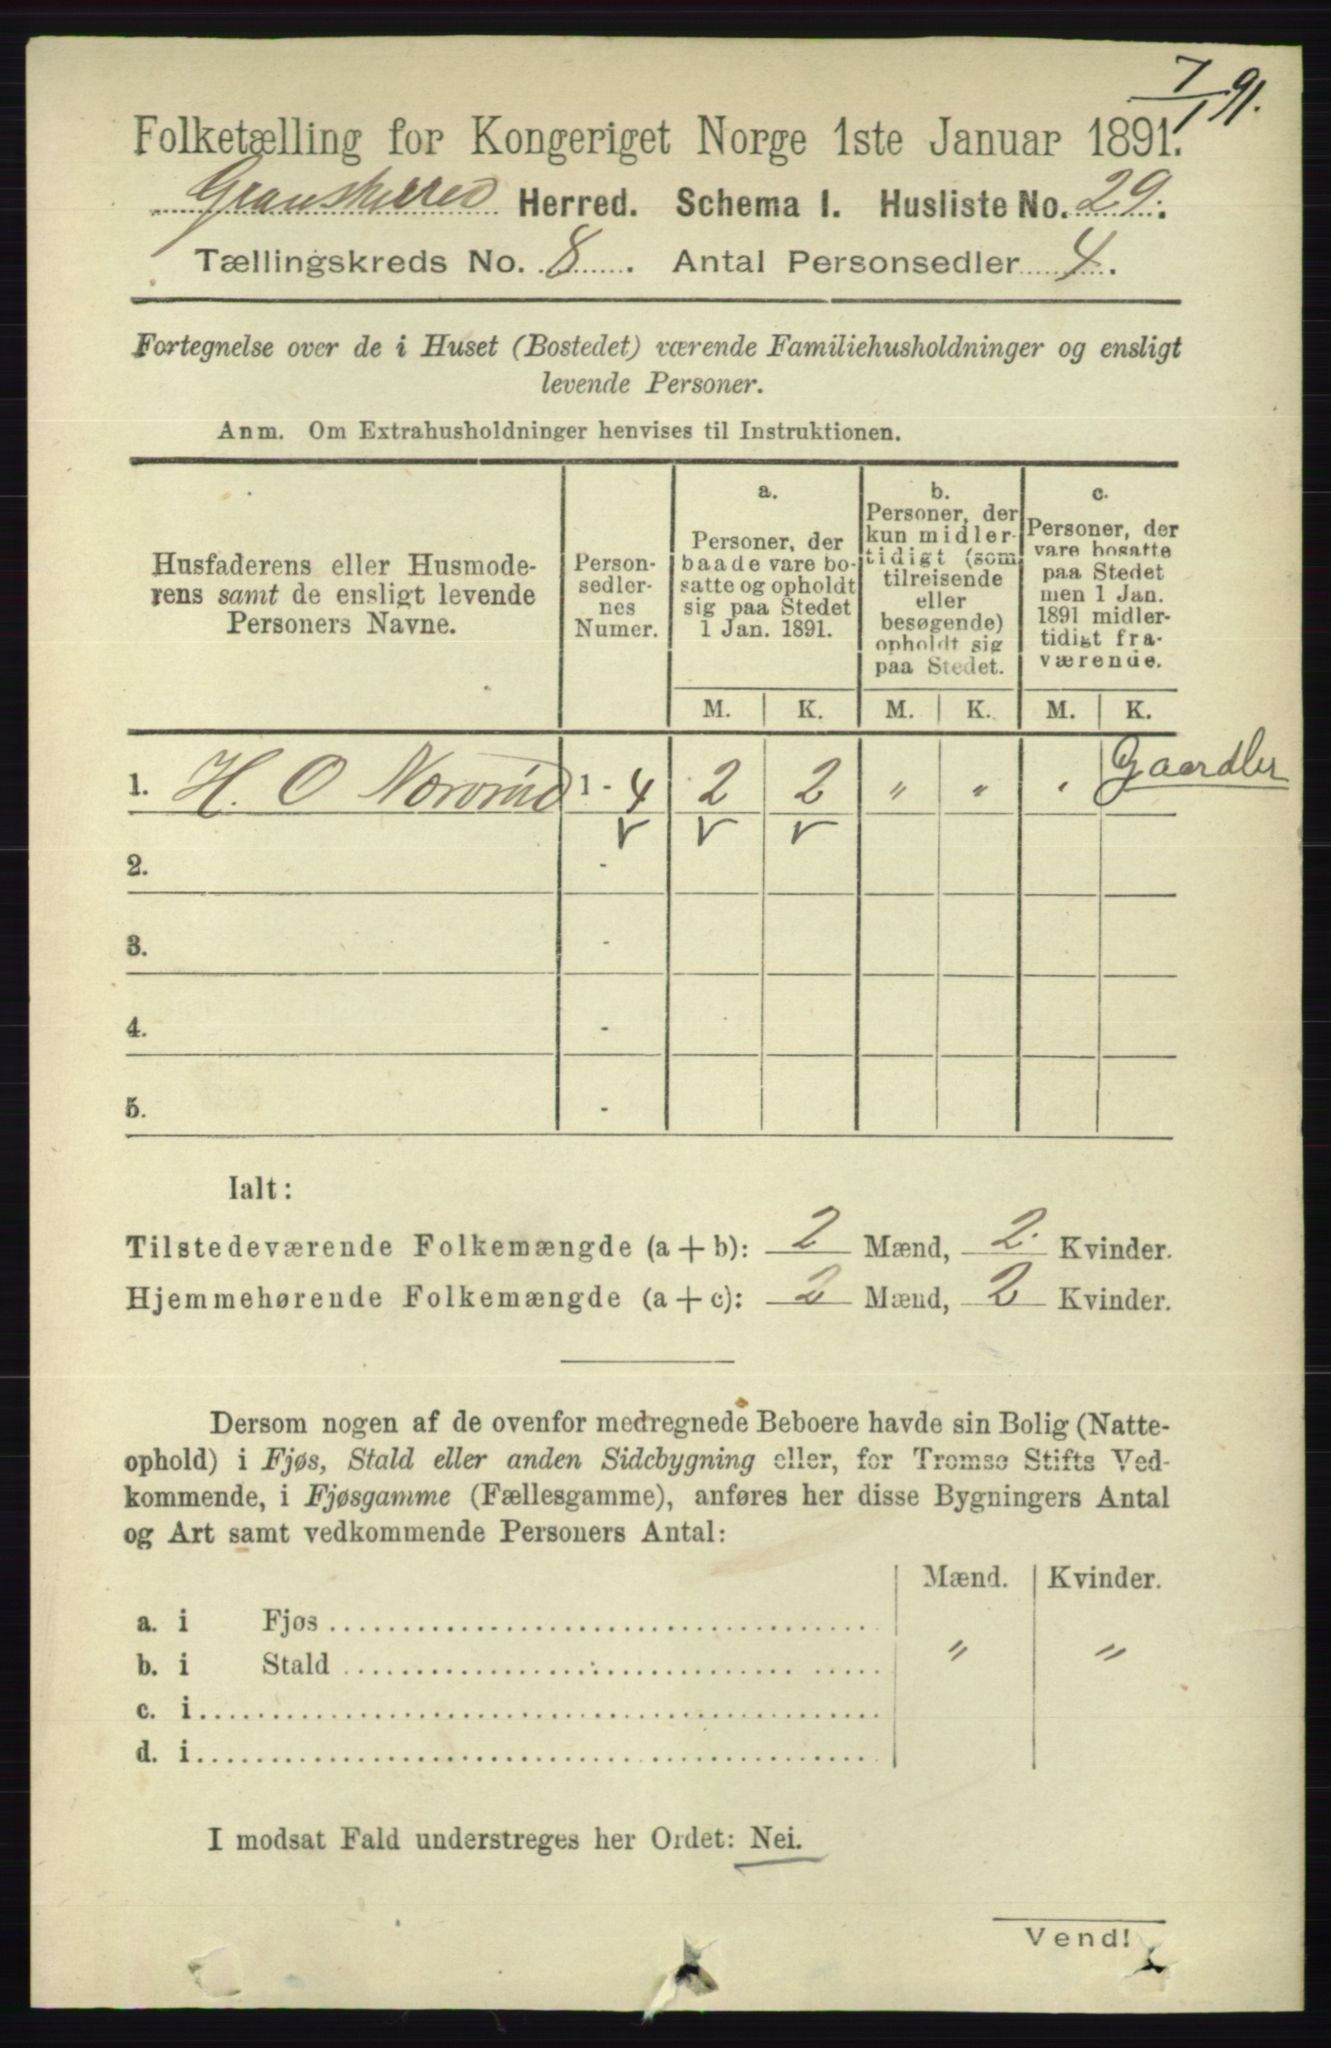 7/1 91.
Folketælling for Kongeriget Norge 1ste Januar 1891.
Gransherred Herred. Schema I. Husliste No. 29.
Tællingskreds No. 8. Antal Personsedler 4.
Fortegnelse over de i Huset (Bostedet) værende Familiehusholdninger og ensligt
levende Personer.
Anm. Om Extrahusholdninger henvises til Instruktionen.
Husfaderens eller Husmode-
rens samt de ensligt levende
Personers Navne.
Person-
sedler-
nes
Numer.
a.
Personer, der
baade vare bo-
satte og opholdt
sig paa Stedet
1 Jan. 1891.
b.
Personer, der
kun midler-
tidigt (som
tilreisende
eller
besøgende)
opholdt sig
paa Stedet.
c.
Personer, der
vare bosatte
paa Stedet
men 1 Jan.
1891 midler-
tidigt fra-
værende.
M. K. M. K. M. K.
1. H. O 1 - 4 2 2 " " "
2. -
3. -
4. -
5. -
Ialt:
Tilstedeværende Folkemængde (a + b): 2 Mænd, 2. Kvinder.
Hjemmehørende Folkemængde (a + c): 2 Mænd, 2 Kvinder.
Dersom nogen af de ovenfor medregnede Beboere havde sin Bolig (Natte-
ophold) i Fjøs, Stald eller anden Sidebygning eller, for Tromsø Stifts Ved-
kommende, i Fjøsgamme (Fællesgamme), anføres her disse Bygningers Antal
og Art samt vedkommende Personers Antal:
Mænd. Kvinder.
a. i Fjøs
b. i Stald " "
c. i
d. i
I modsat Fald understreges her Ordet: Nei.
Vend!